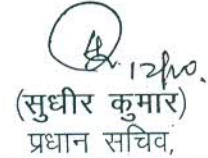 12/10.
(सुधीर कुमार)
प्रधान सचिव,